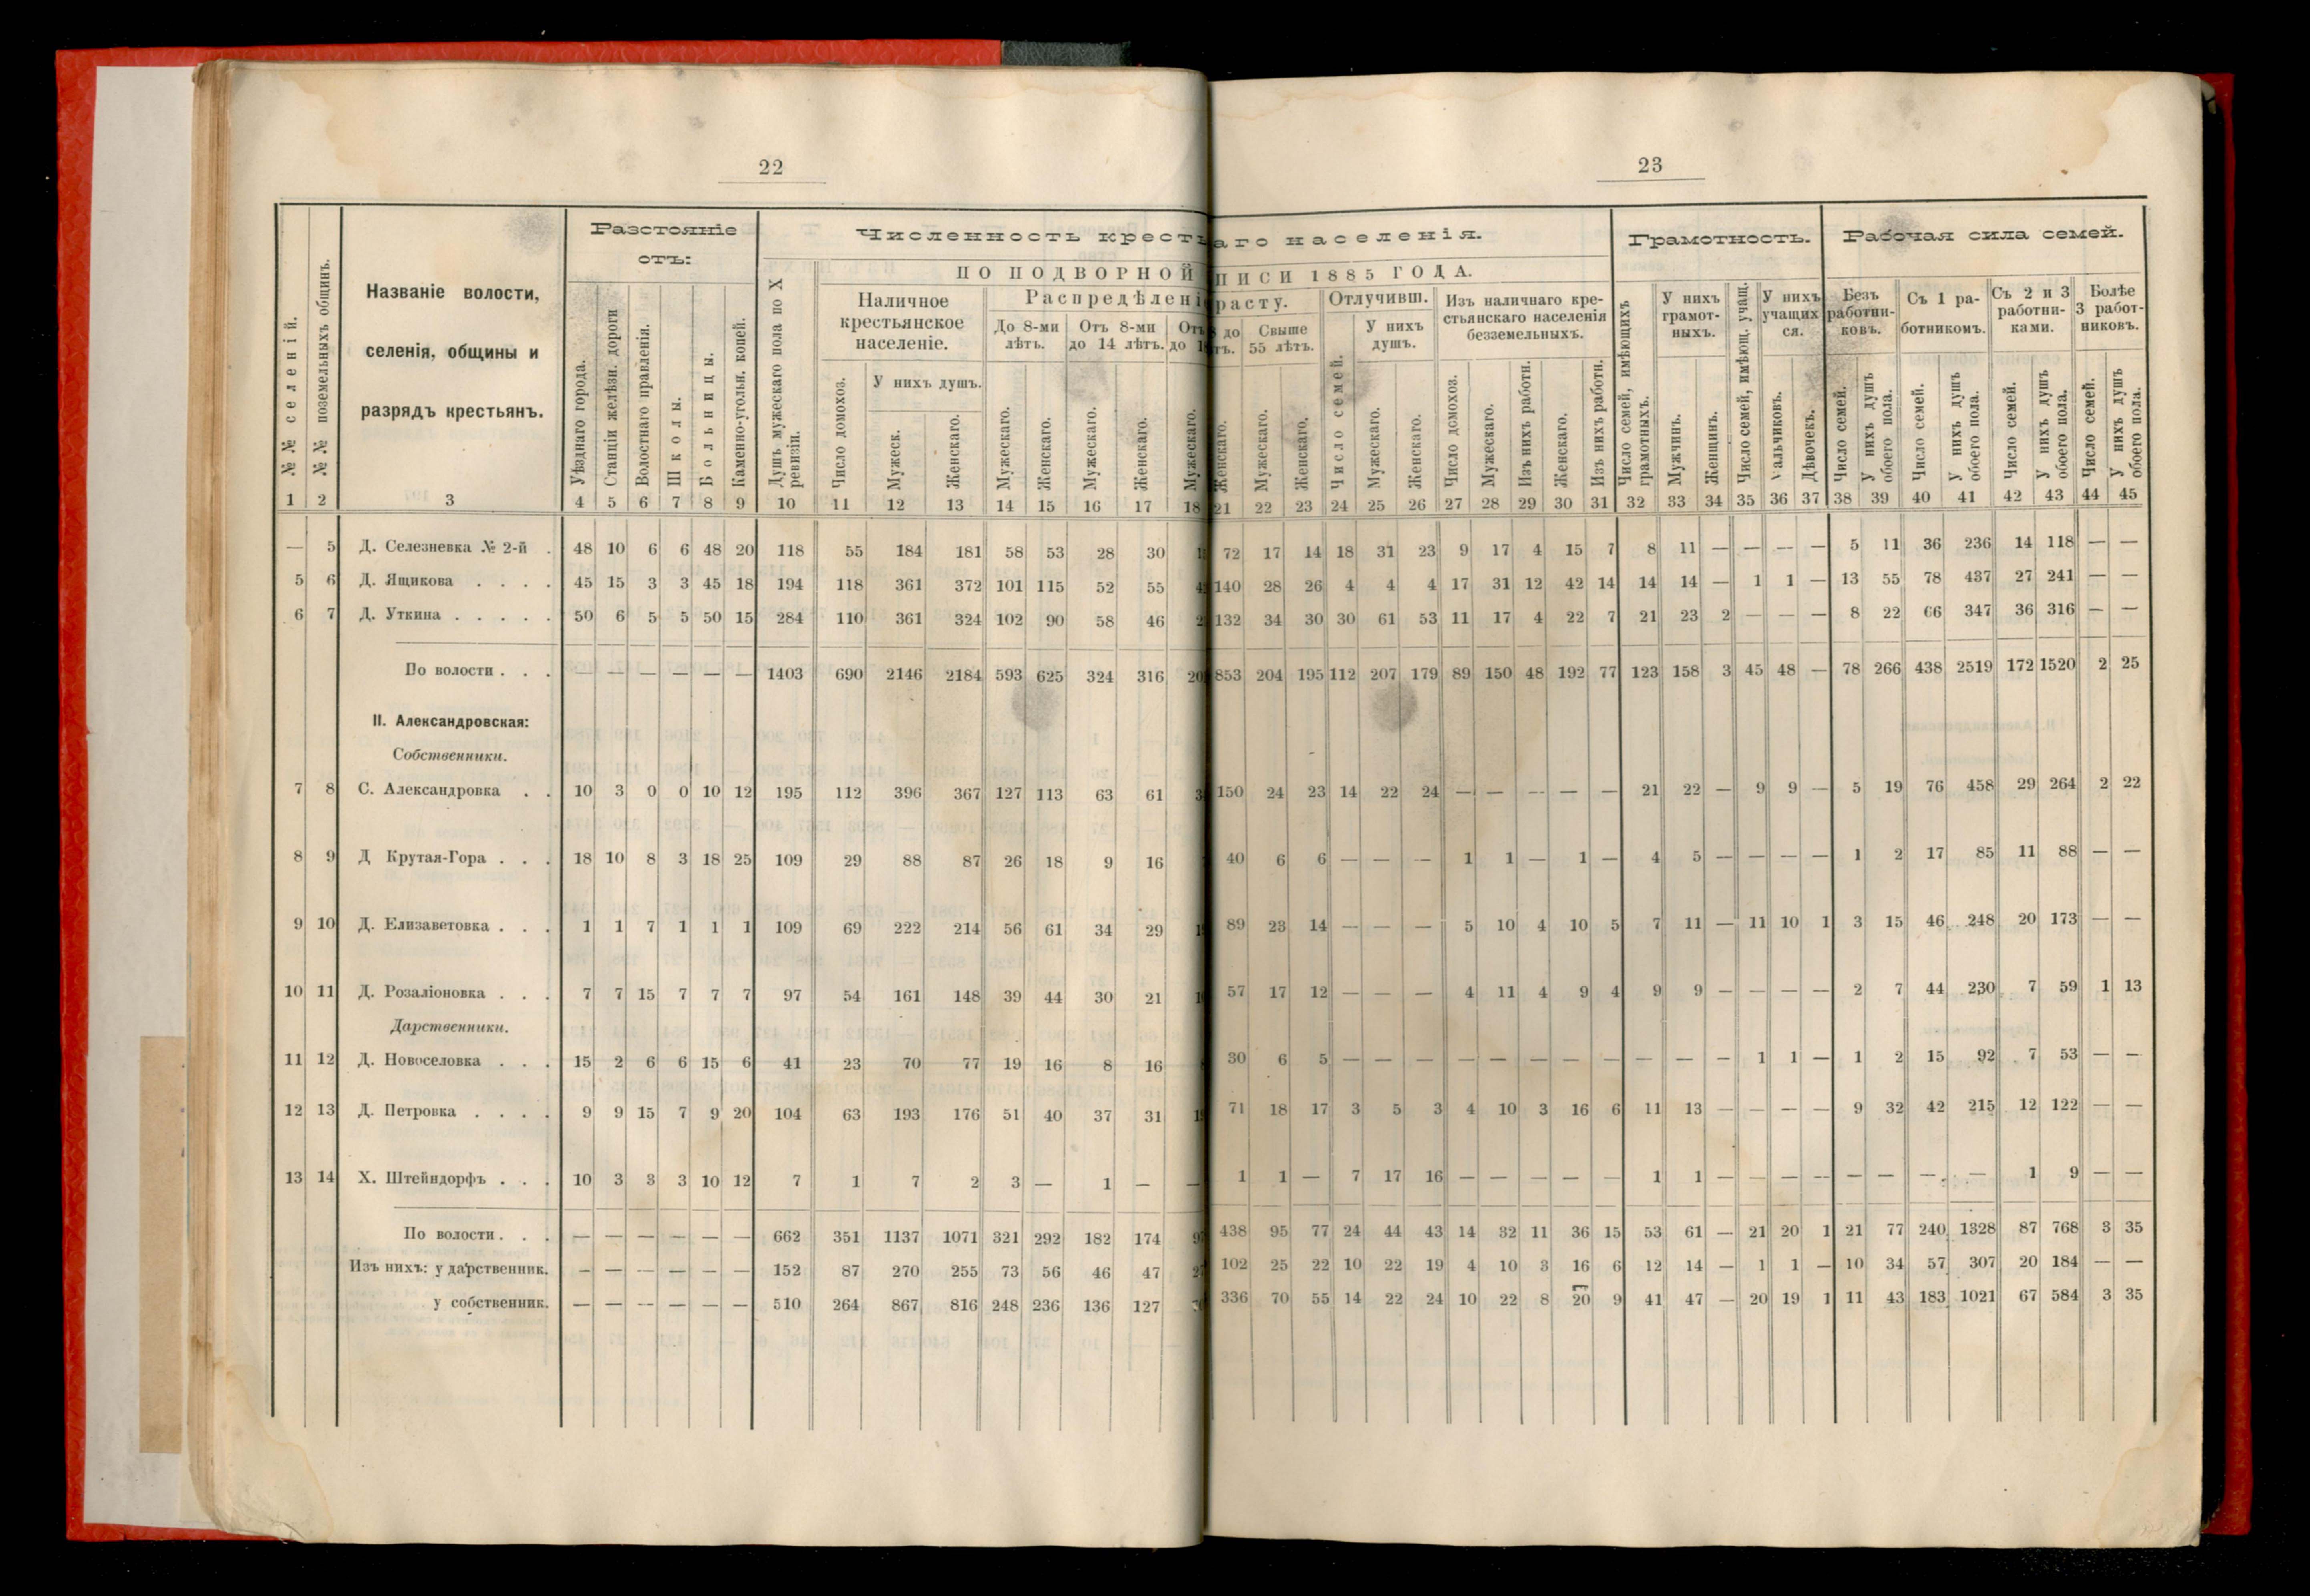 22
23
Разстояніе отъ:
Численность крест
аго населенія.
Грамотность.
Рабочая сила семей.
ПО ПОДВОРНОЙ
ПИСИ 1885 ГОДА.
№№ селеній.
№№ поземельныхъ общинъ.
Названіе волости,
селенія, общины и
разрядъ крестьянъ.
Уѣзднаго города.
Станціи желѣзн. дороги
Волостнаго правленія.
Школы.
Больницы.
Каменно-угольн. копей.
Душъ мужескаго пола по X ревизіи.
Наличное крестьянское населеніе.
Число домохоз.
У нихъ душъ.
Мужеск.
Женскаго.
Распредѣлені
расту.
До 8-ми лѣтъ.
Мужескаго.
Женскаго.
Отъ 8-ми до 14 лѣтъ.
Мужескаго.
Женскаго.
Отъ
до 1
Мужескаго.
до
тъ.
Женскаго.
Свыше 55 лѣтъ.
Мужескаго.
Женскаго.
Отлучивш.
Число семей.
У нихъ душъ.
Мужескаго.
Женскаго.
Изъ наличнаго крестьянскаго населенія безземельныхъ.
Число домохоз.
Мужескаго.
Изъ нихъ работн.
Женскаго.
Изъ нихъ работн.
Число семей, имѣющихъ грамотныхъ.
У нихъ грамотныхъ.
Мужчинъ.
Женщинъ.
Число семей, имѣющ. учащ.
У нихъ учащихся.
альчиковъ.
Дѣвочекъ.
Безъ работниковъ.
Число семей.
У нихъ душъ обоего пола.
Съ 1 работникомъ.
Число семей.
У нихъ душъ обоего пола.
Съ 2 и 3 работниками.
Число семей.
У нихъ душъ обоего пола.
Болѣе 3 работниковъ.
Число семей.
У нихъ душъ обоего пола.
1 2 3 4 5 6 7 8 9 10 11 12 13 14 15 16 17 18 21 22 23 24 25 26 27 28 29 30 31 32 33 34 35 36 37 38 39 40 41 42 43 44 45
— 5 Д. Селезневка № 2-й . 48 10 6 6 48 20 118 55 184 181 58 53 28 30 72 17 14 18 31 23 9 17 4 15 7 8 11 — — — — 5 11 36 236 14 118 — —
5 6 Д. Ящикова . . . . 45 15 3 3 45 18 194 118 361 372 101 115 52 55 140 28 26 4 4 4 17 31 12 42 14 14 14 — 1 1 — 13 55 78 437 27 241 — —
6 7 Д. Уткина . . . . . 50 6 5 5 50 15 284 110 361 324 102 90 58 46 132 34 30 30 61 53 11 17 4 22 7 21 23 2 — — — 8 22 66 347 36 316 — —
По волости . . . — — — — — — 1403 690 2146 2184 593 625 324 316 853 204 195 112 207 179 89 150 48 192 77 123 158 3 45 48 — 78 266 438 2519 172 1520 2 25
II. Александровская:
Собственники.
7 8 С. Александровка . . 10 3 0 0 10 12 195 112 396 367 127 113 63 61 150 24 23 14 22 24 — — — — — 21 22 — 9 9 — 5 19 76 458 29 264 2 22
8 9 Д Крутая-Гора . . . 18 10 8 3 18 25 109 29 88 87 26 18 9 16 40 6 6 — — — 1 1 — 1 — 4 5 — — — — 1 2 17 85 11 88 — —
9 10 Д. Елизаветовка . . . 1 1 7 1 1 1 109 69 222 214 56 61 34 29 89 23 14 — — — 5 10 4 10 5 7 11 — 11 10 1 3 15 46 248 20 173 — —
10 11 Д. Розаліоновка . . . 7 7 15 7 7 7 97 54 161 148 39 44 30 21 57 17 12 — — — 4 11 4 9 4 9 9 — — — — 2 7 44 230 7 59 1 13
Дарственники.
11 12 Д. Новоселовка . . . 15 2 6 6 15 6 41 23 70 77 19 16 8 16 30 6 5 — — — — — — — — — — — 1 1 — 1 2 15 92 7 53 — —
12 13 Д. Петровка . . . . 9 9 15 7 9 20 104 63 193 176 51 40 37 31 71 18 17 3 5 3 4 10 3 16 6 11 13 — — — — 9 32 42 215 12 122 — —
13 14 Х. Штейндорфъ . . . 10 3 3 3 10 12 7 1 7 2 3 — 1 — — 1 1 — 7 17 16 — — — — — 1 1 — — — — — — — — 1 9 — —
По волости . . . — — — — — — 662 351 1137 1071 321 292 182 174 438 95 77 24 44 43 14 32 11 36 15 53 61 — 21 20 1 21 77 240 1328 87 768 3 35
Изъ нихъ: у дарственник. — — — — — — 152 87 270 255 73 56 46 47 102 25 22 10 22 19 4 10 3 16 6 12 14 — 1 1 — 10 34 57 307 20 184 — —
у собственник. — — — — — — 510 264 867 816 248 236 136 127 336 70 55 14 22 24 10 22 8 20 9 41 47 — 20 19 1 11 43 183 1021 67 584 3 35